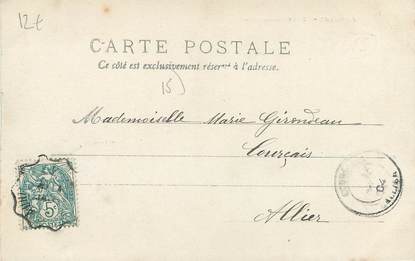 12€
CARTE POSTALE
Ce côté est exclusivement réservé à l'adresse.
15)
Mademoiselle Marie Girondeau
Courçais
Allier
5
ALLIER